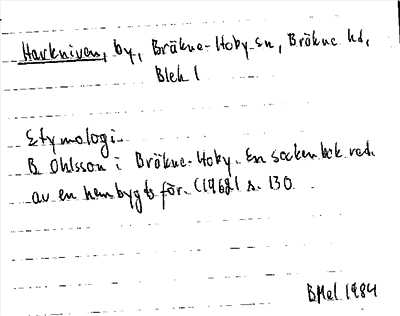 Harkniven, by, Bräkne-Hoby sn, Bräkne hd,
Blek l
Etymologi.
B. Ohlsson i Bräkne-Hoby. En sockenbok red.
av en hembygdsför. (1962) s. 130.
BMel 1984